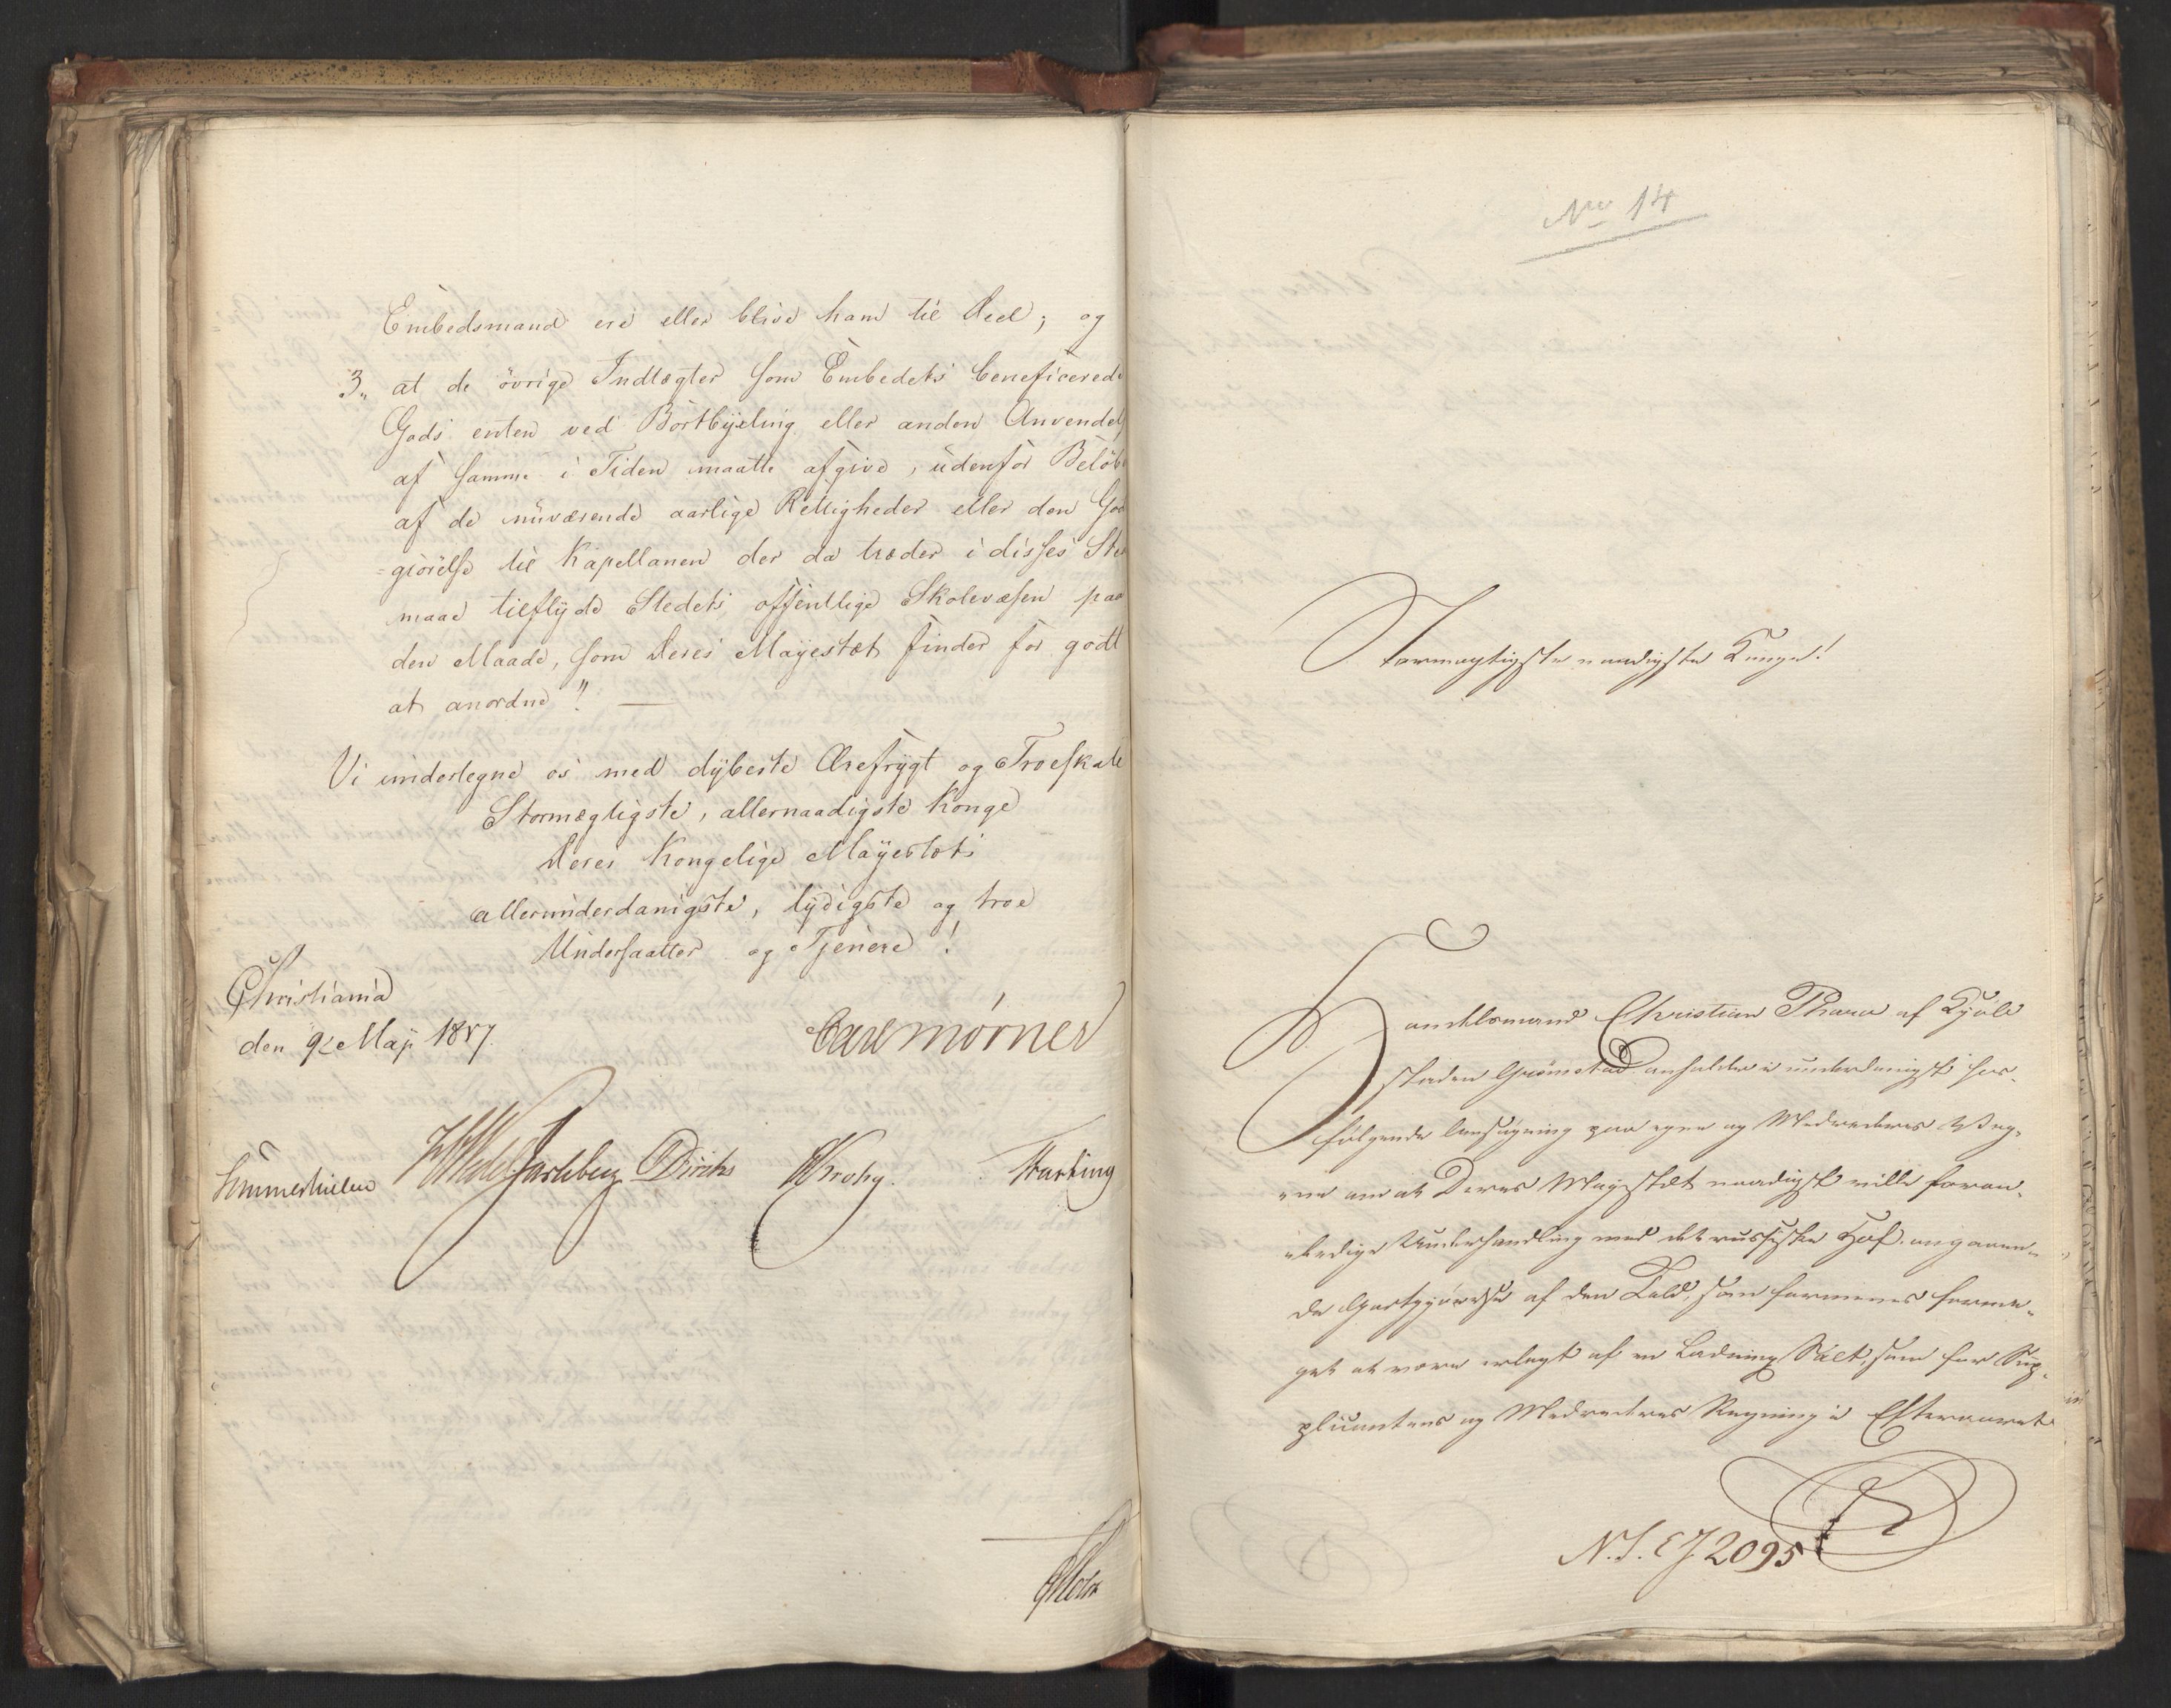 Embedsmand ere eller blive ham til Deel; og
3„ at de övrige Indtægter som Embedets beneficerede
Gods enten ved Bortbÿxling eller anden Anvendels
af samme i Tiden maatte afgive, udenfor Belöb
af de nuværende aarlige Rettigheder eller den God
=giörelse til Kapellanen der da træder i disses Sted
maae tilflÿde Stedets offentlige Skolevæsen paa
den Maade, som Deres Mayestæt finder for godt
at anordne"!
Vi underlegne os med dÿbeste Ærefrÿgt og Troeskab
Stormægtigste, allernaadigste Konge
Deres Kongelige Mayestæts
allerunderdanigste, lÿdigste og troe
Undersaatter og Tjenere!
Christiania
den 9de Maji 1817.
Carl Mörner
Sommerhielm Wedel Jarlsberg Diriks Krohg. Motzfeldt
Nro 14
Stormægtigste naadigste Konge!
Handelsmand Christian Thura af Kjöb-
staden Grimstad anholder i underdanigst her-
følgende Ansøgning paa egne og Medrederes Veg-
ne om at Deres Mayestæt naadigst ville foran-
ledige Underhandling med det russiske Hof angaaen-
de Godtgjørelse af den Told, som formenes forme-
get at være erlagt af en Ladning Salt, som for Sup-
plicantens og Medrederes Regning i Efteraaret
N.S.EJ. 2095